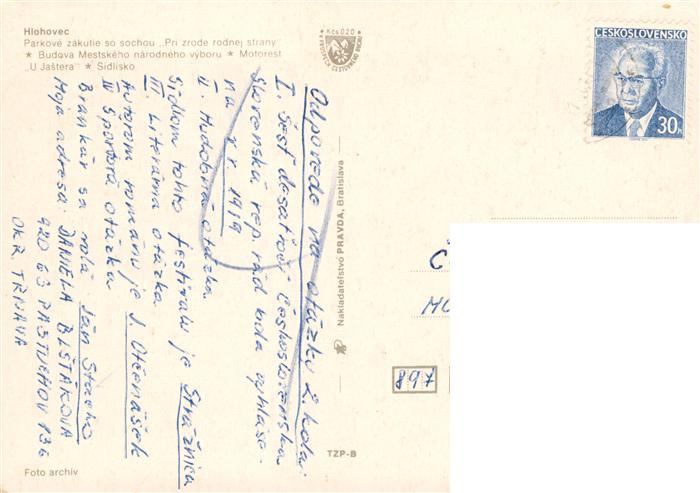 Hlohovec
Parkové zákutie so sochou „Pri zrode rodnej strany"
★ Budova Mestského národného výboru ★ Motorest
„U Jaštera" ★ Sídlisko
Kčs 0,20
ČESKOSLOVENSKO
30h
Odpovede na otázky 2. kola:
I. Šesť desaťročí československa
Slovenská rep. rád bola vyhláse-
ná v r. 1919
II. Hudobná otázka.
Sídlom tohto festivalu je Strážnica
III. Literárna otázka
Autorom románu je J. Otčenášek
IV Športová otázka
Brankár sa volá Ján Stacho
Moja adresa: DANIELA BLŠŤÁKOVÁ
920 63 PASTUCHOV 136
OKR. TRNAVA
Nakladateľstvo PRAVDA, Bratislava
897
TZP-B
Foto archív